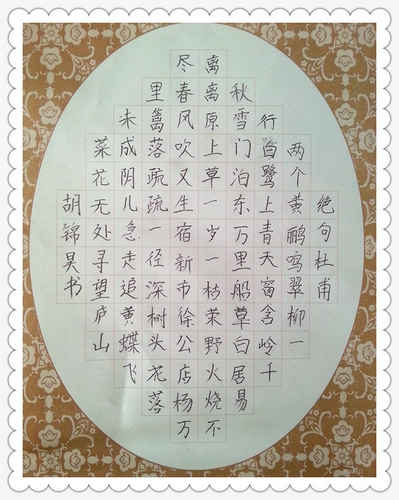 绝句杜甫
两个黄鹂鸣翠柳一
行白鹭上青天窗含岭千
秋雪门泊东万里船草白居易
离离原上草一岁一枯荣野火烧不
尽春风吹又生宿新市徐公店杨万
里篱落疏疏一径深树头花落
未成阴儿急走追黄蝶飞
菜花无处寻望庐山
胡锦昊书